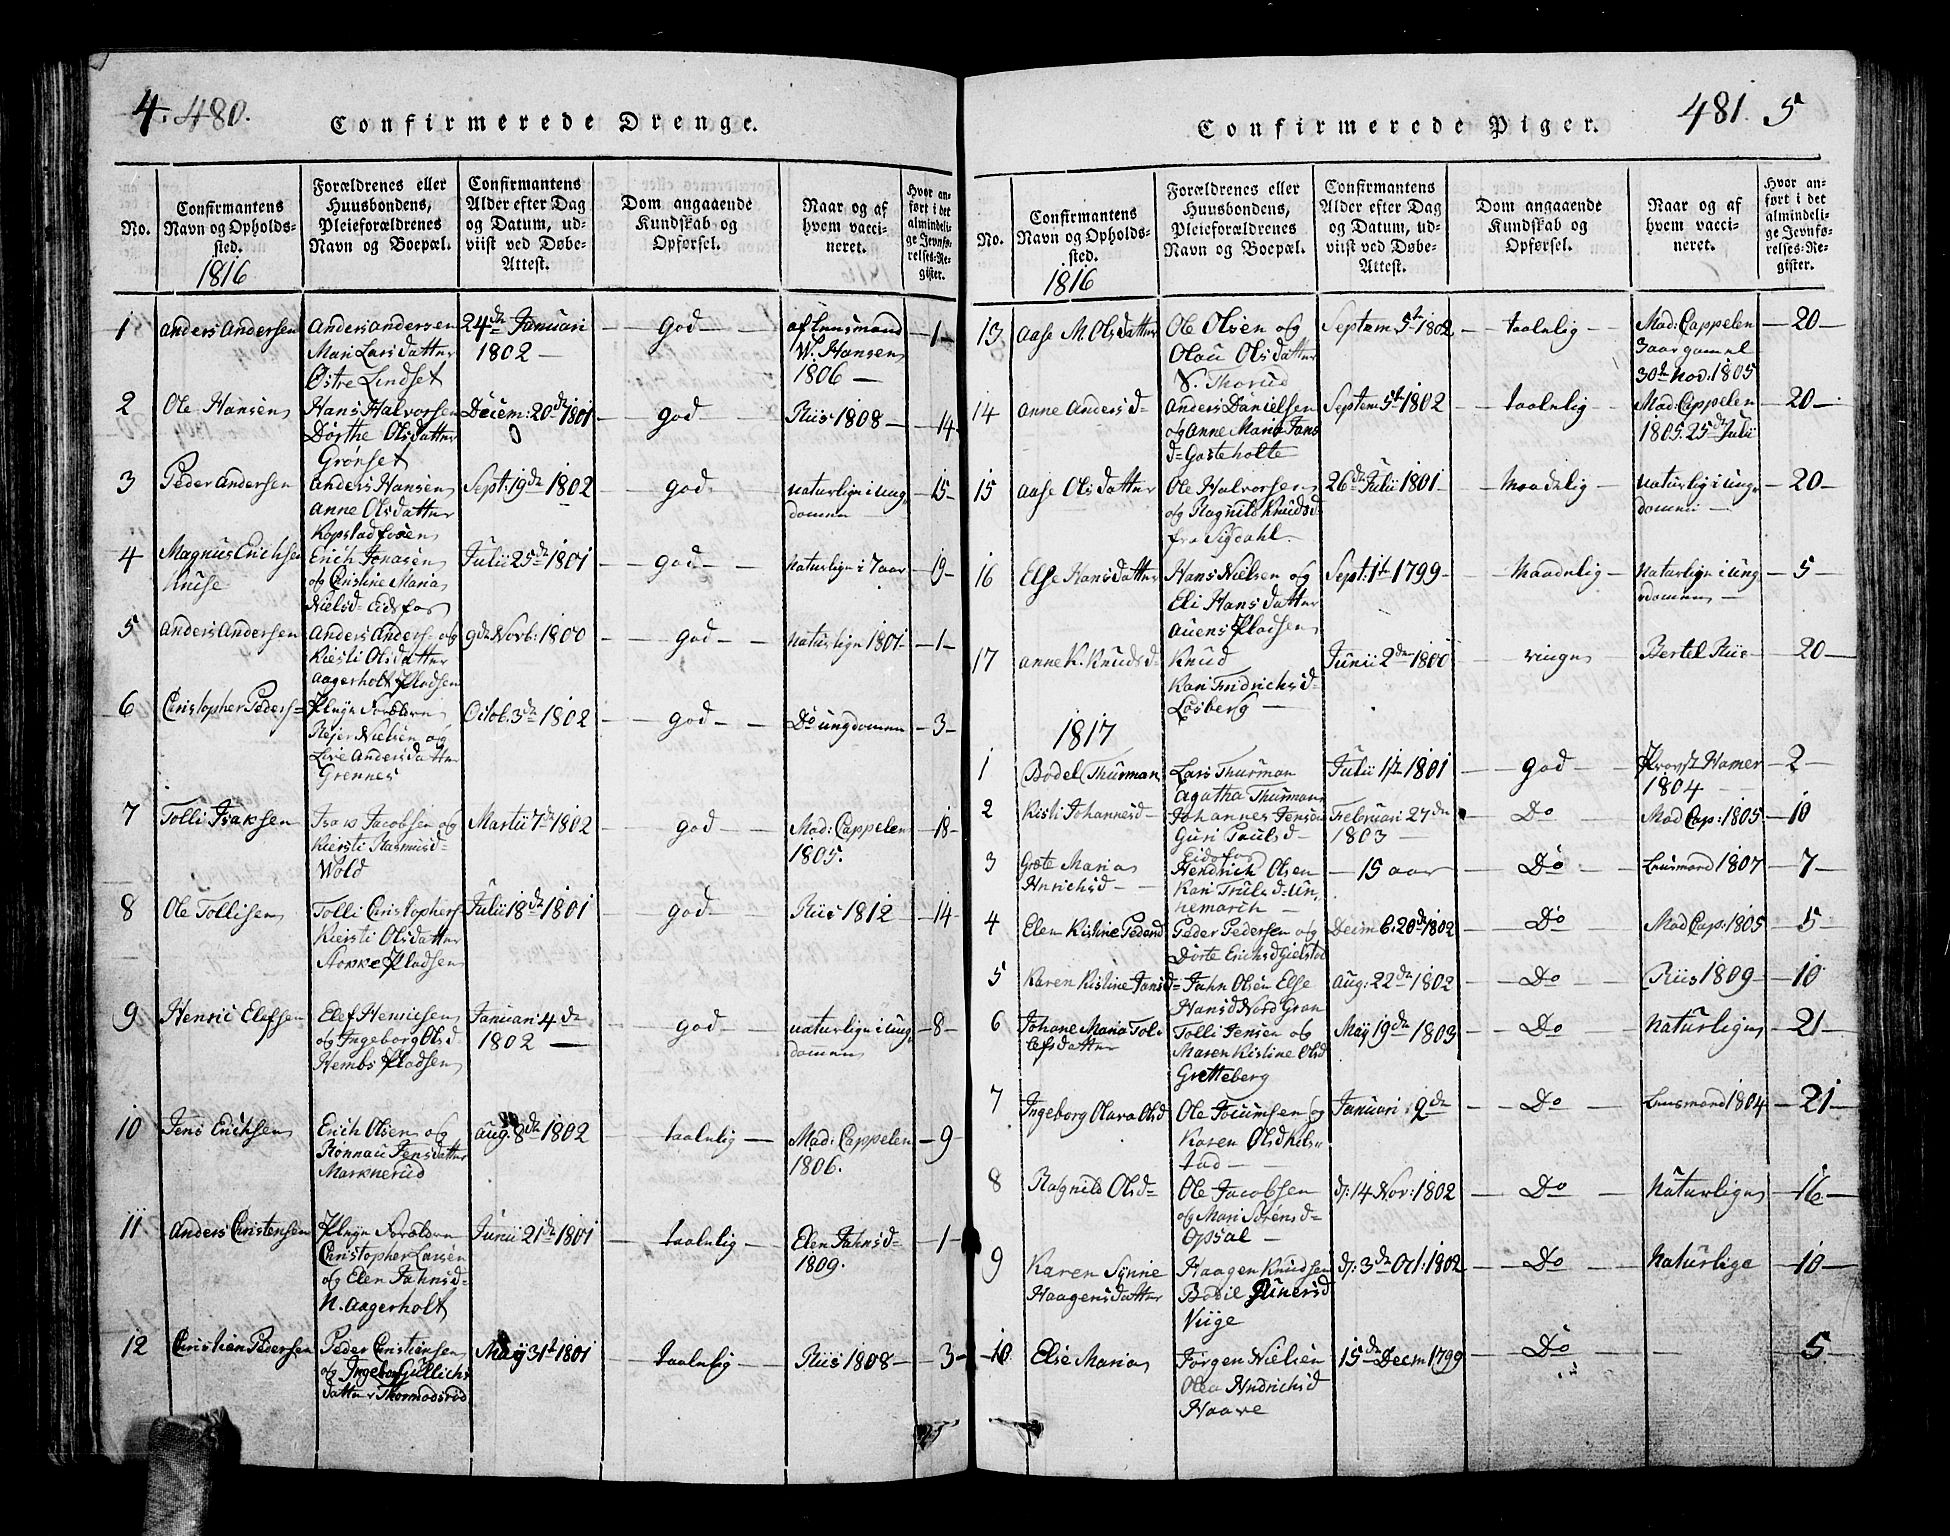 4. 480.
Confirmerede Drenge.
No.
Confirmantens
Navn og Opholds-
sted.
1816
Forældrenes eller
Huusbondens,
Pleieforældrenes
Navn og Boepæl.
Confirmantens
Alder efter Dag
og Datum, ud-
viist ved Døbe-
Attest.
Dom angaaende
Kundskab og
Opførsel.
Naar og af
hvem vacci-
neret.
Hvor an-
ført i det
almindeli-
ge Jevnfø-
relses-Re-
gister.
1 Anders Andersen
Anders Andersen
Mari Larsdatter
Østre Lindset
24de Januari
1802 —
— god —
af Lensmand
W. Hansen
1806 —
— 1 —
2 Ole Hansen
Hans Halvorsen
Dorthe Olsdatter
Grønset
Decem: 20de 1801
— god —
Riis 1808 —
14
3 Peder Andersen
Anders Hansen
Anne Olsdatter
Kopstadfosen
Sept: 19de 1802
— god —
naturlige i ung-
dommen
15 —
4 Magnus Erichsen
Kruse
Erich Jonasen
og Christine Maria
Nielsd= Eidsfos
Julii 25de 1801
— god —
naturlige i 7 aar
— 19 —
5 Anders Andersen
Anders Anders= og
Kiesti Olsdatter
Aagerholt Pladsen
9de Novb: 1800
— god —
naturlige 1801 —
— 1 —
6 Christopher Peders=
Pleye Forældre
Rejer Nielsen og
Live Andersdatter
Grennes
Octob. 3de 1802
— god —
Do ungdommen
— 3 —
7 Tolli Isaksen
Isak Jacobsen og
Kiersti Rasmusd=
Wold
Martii 7de 1802
— god
Mad: Cappelen
1805.
— 18 —
8 Ole Tollisen
Tolli Christophers=
Kiersti Olsdatter
Pladsen
Julii 18de 1801
— god —
Riis 1812 —
14 —
9 Henric Elefsen
Elef Henricsen
og Ingeborg Olsd
Hembs Pladsen
Januari 4de
1802 —
— god —
naturlige i ung-
dommen
— 8 —
10 Jens Erichsen
Erich Olsen og
Rønnau Jensdatter
Marknerud
Aug. 8de 1802
— taalelig —
Mad: Cappelen
1806.
— 9 —
11 Anders Christensen
Pleye Forældre
Christopher Larsen
og Elen Jahnsd=
N. Aagerholt
Junii 21de 1801
— taalelig —
Elen Jahnsd=
1809.
— 1 —
12 Christian Pedersen
Peder Christiensen
og Ingebor Gullichs
datter Thormodsrød
May 31t 1801
— taalelig —
Riis 1808 —
3 —
481. 5
Confirmerede Piger.
No.
Confirmantens
Navn og Opholds-
sted.
1816
Forældrenes eller
Huusbondens,
Pleieforældrenes
Navn og Boepæl.
Confirmantens
Alder efter Dag
og Datum, ud-
viist ved Døbe-
Attest.
Dom angaaende
Kundskab og
Opførsel.
Naar og af
hvem vacci-
neret.
Hvor an-
ført i det
almindeli-
ge Jevnfø-
relses-Re-
gister.
13 Aase M. Olsdatter
Ole Olsen og
Olau Olsdatter
V. Thorud
Septem 5t 1802
— taalelig —
Mad: Cappelen
3 aar gamel
30te Nov: 1805
— 20 —
14 Anne Andersd=
Anders Danielsen
og Anne Maria Jans
d= Gasteholte
Septem 5t 1802
— taalelig —
Mad: Cappelen
1805. 25de Julii
— 20 —
15 Aase Olsdatter
Ole Halvorsen
og Ragnild Knudsd=
fra Sigdahl.
26de Julii 1801 —
— Maadelig —
naturlig i ung-
dommen —
20 —
16 Else Hansdatter
Hans Nielsen og
Eli Hansdatter
Auens Pladsen
Sept: 1t 1799 —
— Maadelig —
naturlige i ung-
dommen —
— 5 —
17 Anne K. Knudsd=
Knud
Kari Fredrichsd=
Losberg —
Junii 2de 1800
— ringe
Bertel Riis —
20 —
1817
1 Bodel Thurman
Lars Thurman
Agatha Thurman
Julii 1ste 1801
— god —
Provst Hamer
1804 —
— 2 —
2 Kisti Johannesd=
Johannes Jensen
Guri Paulsd=
Eidsfos
Februari 27de
1803
— Do —
Mad Cap: 1805
— 10
3 Grete Maria
Hnrichsd —
Hendrich Olsen
Kari Trulsd= Un-
nemarch —
— 15 aar
— Do —
Lensmand 1807
— 7 —
4 Elen Kistine Pedersd
Peder Pedersen og
Dorte Erichsd Gielstod
Decim 6: 20de 1802
— Do —
Mad Cap: 1805
— 5 —
5 Karen Kistine Jansd=
Jahn Olsen Else
Hansd Nord Gran
Aug: 22de 1802
— Do —
Riis 1809
— 10
6 Johane Maria Tol-
lefsdatter
Tolli Jensen og
Maren Kistine Olsd
Gretteberg
May 19de 1803
— Do —
Naturlige
— 21 —
7 Ingeborg Olava Olsd
Ole Jocumsen og
Karen Olsd Kels-
tad —
Januari 9de
— Do —
Lensmand 1804
— 21 —
8 Ragnild Olsd=
Ole Jacobsen
og Mari Sørensd=
Opsal —
d: 14 Nov: 1802
— Do —
Naturlige
— 16 —
9 Karen Synne
Haagensdatter
Haagen Knudsen
Bodil Gunersd
Viige
d: 3de Oct: 1802
— Do —
Naturlige
— 10 —
10 Else Maria
Jørgen Nielsen
Olea Hndrichsd
Haave
15de Decm 1799
— Do —
—
5